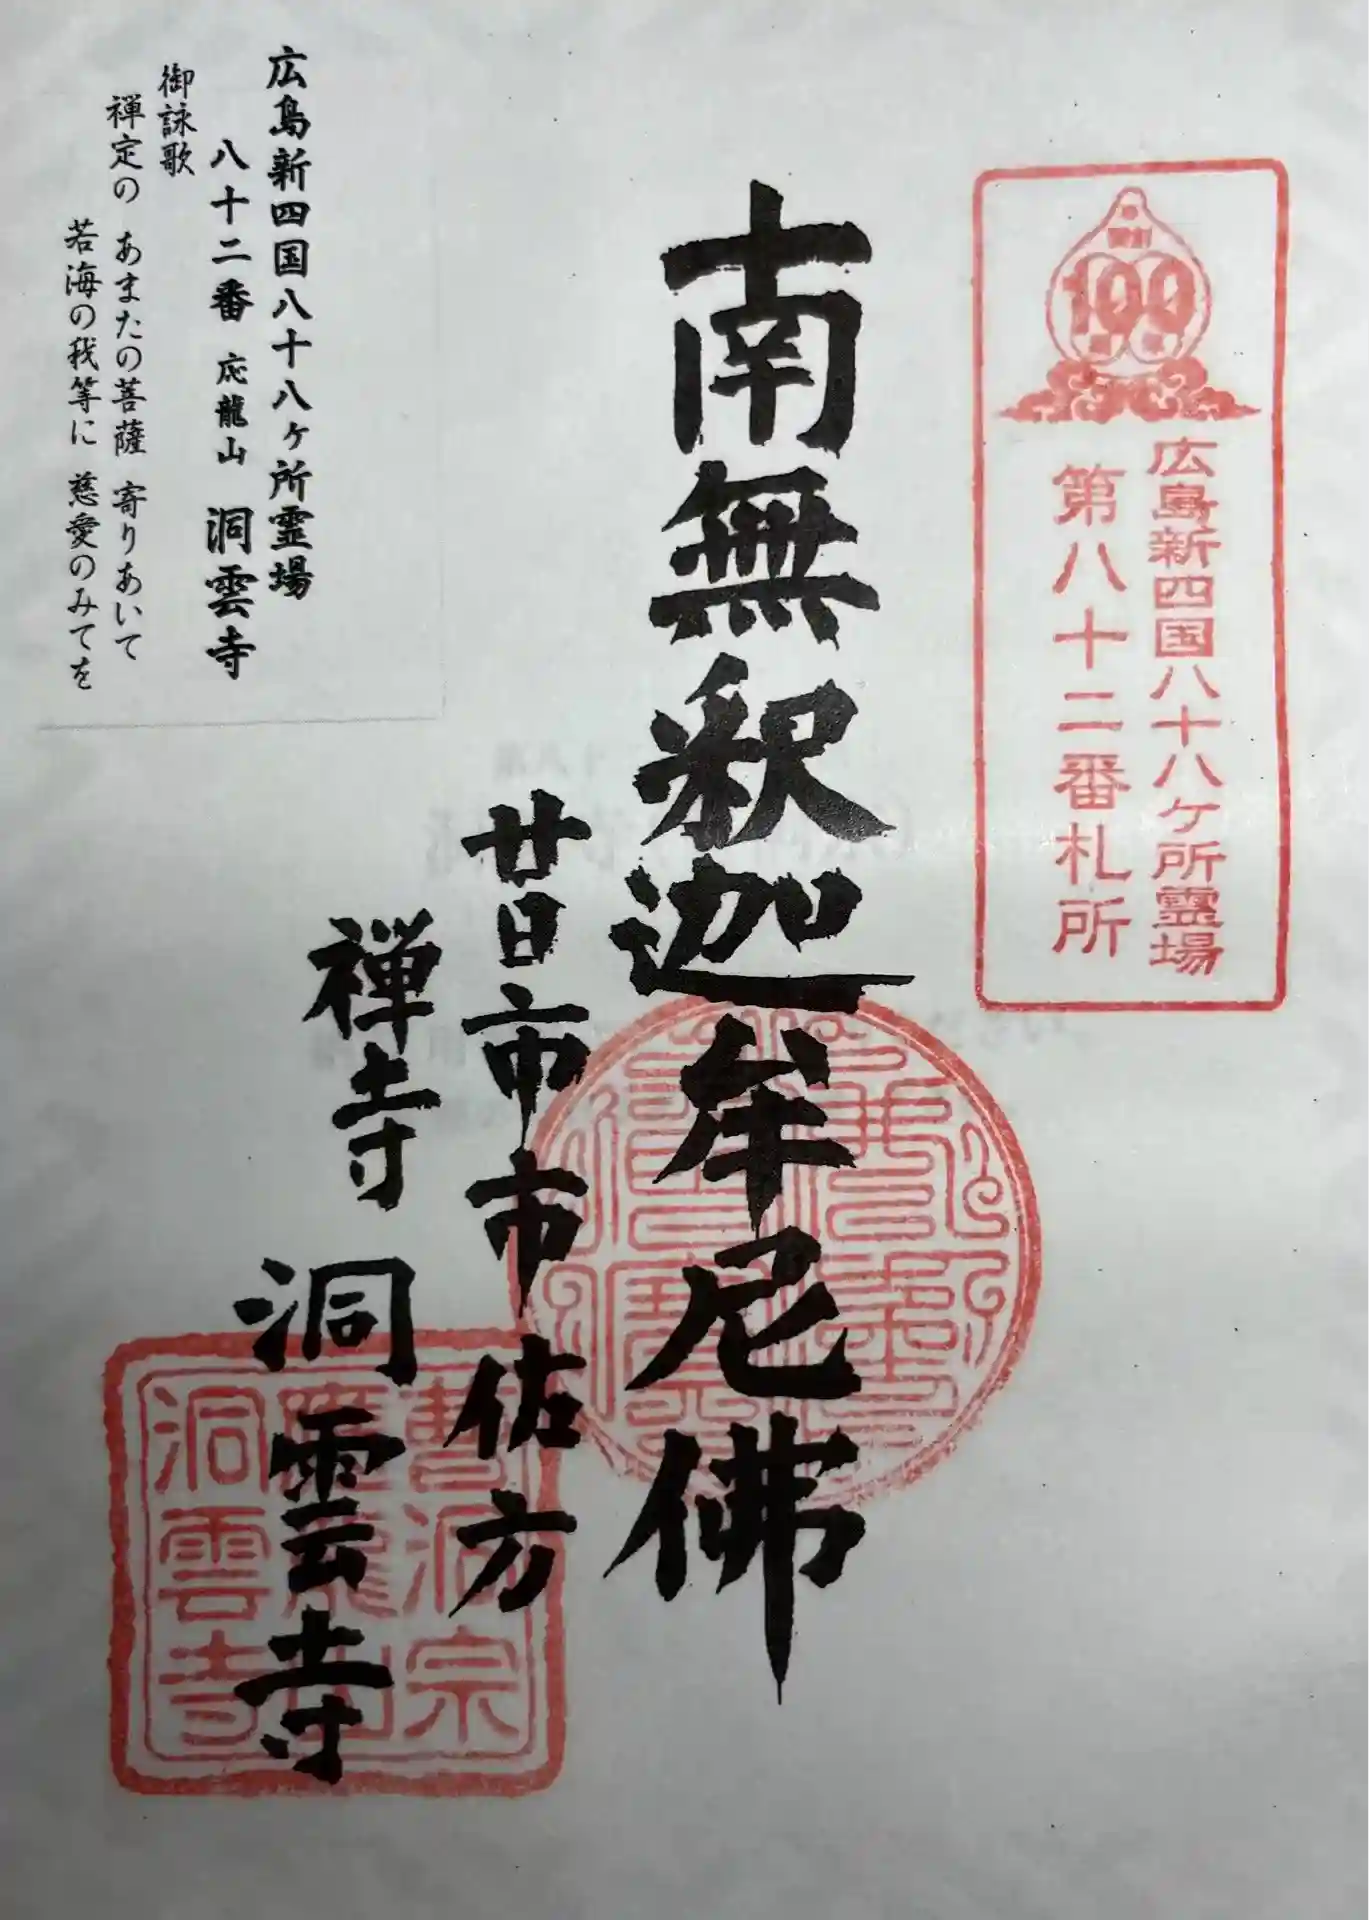 広島新四国八十八ヶ所霊場
第八十二番札所
100
南無釈迦牟尼佛
廿日市市佐方
禅寺 洞雲寺
曹洞宗
應龍山
洞雲寺
広島新四国八十八ヶ所霊場
八十二番 応龍山 洞雲寺
御詠歌
禅定の あまたの菩薩 寄りあいて
若海の我等に 慈愛のみてを